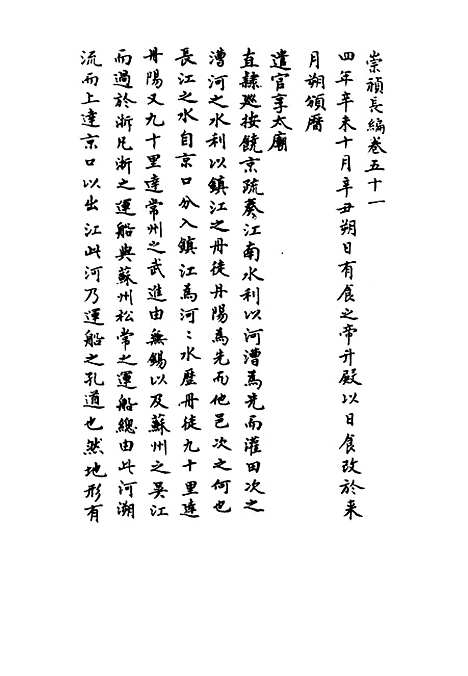 崇禎長編卷五十一
四年辛未十月辛丑朔日有食之帝升殿以日食改於来
月朔頒曆
遣官享太廟
直隷巡按饒京疏奏江南水利以河漕爲先而灌田次之
漕河之水利以鎮江之丹徒丹陽爲先而他邑次之何也
長江之水自京口分入鎮江爲河〻水歷丹徒九十里達
丹陽又九十里達常州之武進由無錫以及蘇州之吳江
而過於浙凡浙之運船與蘇州松常之運船總由此河溯
流而上達京口以出江此河乃運船之孔道也然地形有